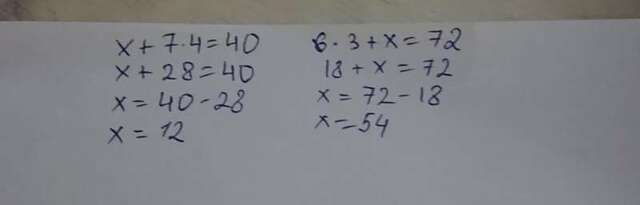 x + 7 · 4 = 40
x + 28 = 40
x = 40 - 28
x = 12
6 · 3 + x = 72
18 + x = 72
x = 72 - 18
x = 54